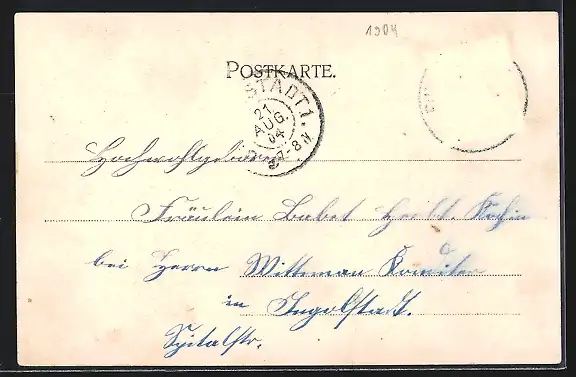 1904
POSTKARTE.
STADT 1.
21
AUG.
04
7-8 N.
Hochwohlgeboren
Fräulein Babet Herbst. Köchin
bei Herrn Wittman
in Ingolstadt.
Spitalstr.